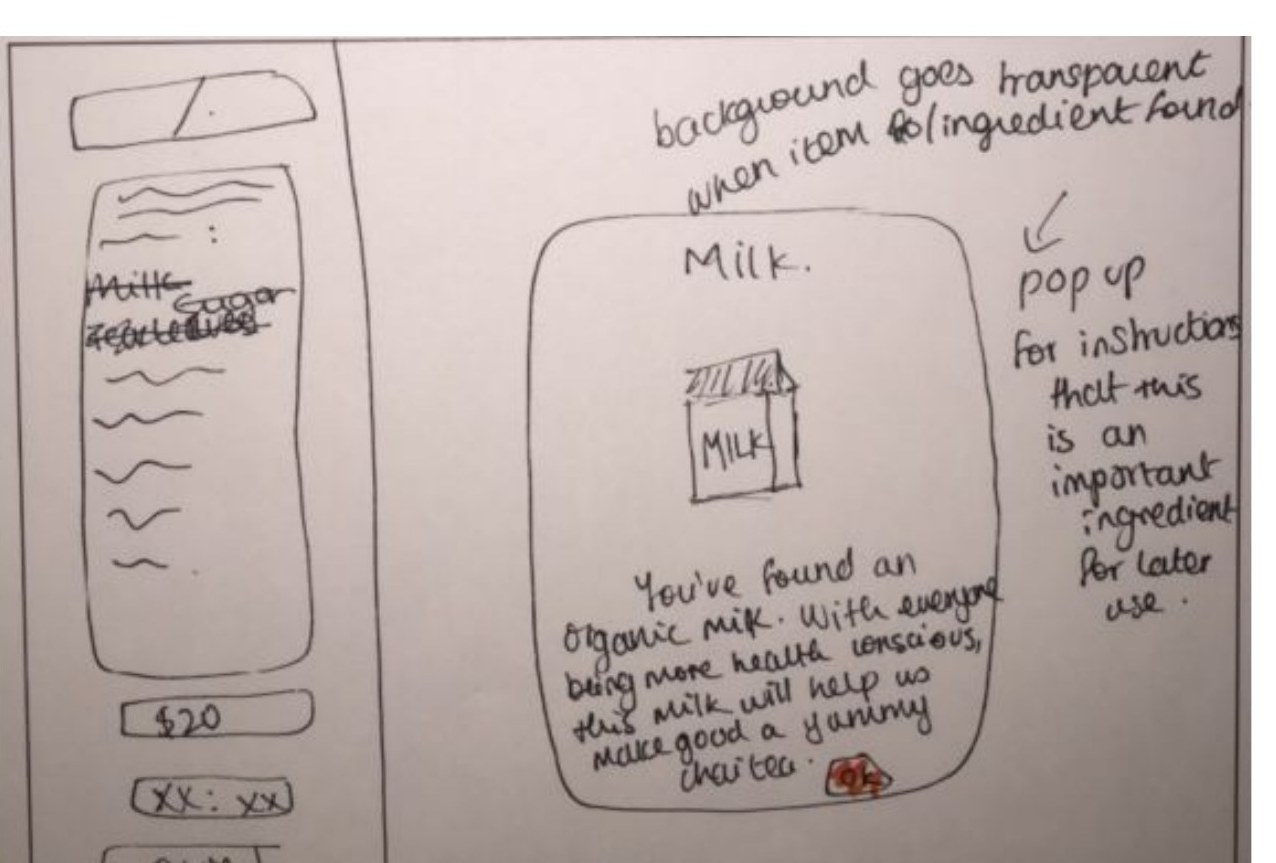 Milk
Sugar
$20
XX: XX
background goes transparent
when item /ingredient found
Milk.
MILK
You've found an
organic milk. With everyone
being more health conscious,
this milk will help us
make good a yummy
chai tea.
Ok
pop up
for instructions
that this
is an
important
ingredient
for later
use.